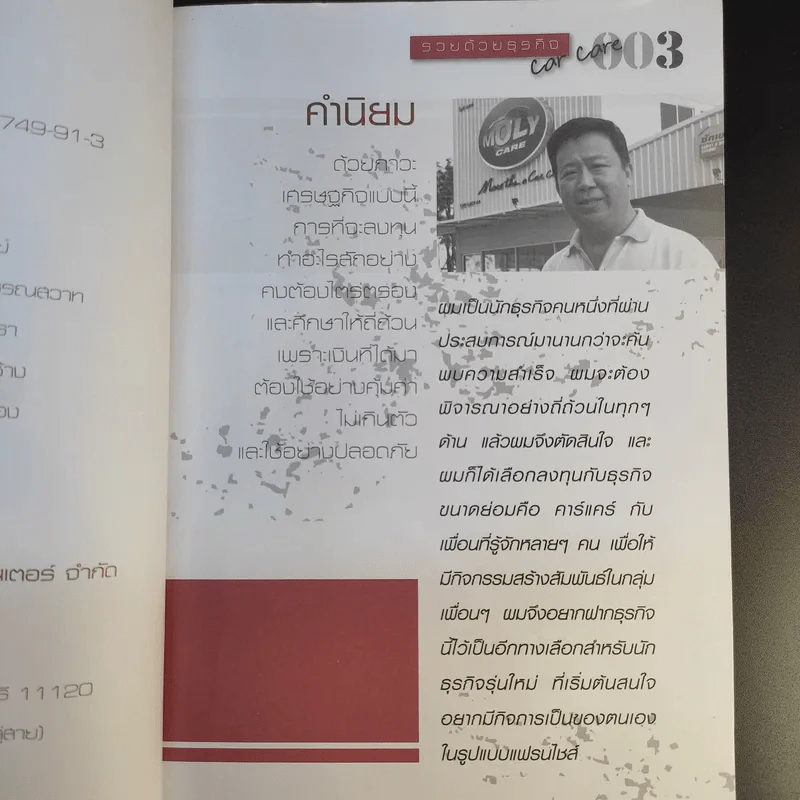 749-91-3
รวยด้วยธุรกิจ
car care
003
คำนิยม
MOLY
CARE
ด้วยภาวะ
เศรษฐกิจแบบนี้
การที่จะลงทุน
ทำอะไรสักอย่าง
คงต้องไตร่ตรอง
และศึกษาให้ถี่ถ้วน
เพราะเงินที่ได้มา
ต้องใช้อย่างคุ้มค่า
ไม่เกินตัว
และใช้อย่างปลอดภัย
ผมเป็นนักธุรกิจคนหนึ่งที่ผ่าน
ประสบการณ์มานานกว่าจะค้น
พบความสำเร็จ ผมจะต้อง
พิจารณาอย่างถี่ถ้วนในทุกๆ
ด้าน แล้วผมจึงตัดสินใจ และ
ผมก็ได้เลือกลงทุนกับธุรกิจ
ขนาดย่อมคือ คาร์แคร์ กับ
เพื่อนที่รู้จักหลายๆ คน เพื่อให้
มีกิจกรรมสร้างสัมพันธ์ในกลุ่ม
เพื่อนๆ ผมจึงอยากฝากธุรกิจ
นี้ไว้เป็นอีกทางเลือกสำหรับนัก
ธุรกิจรุ่นใหม่ ที่เริ่มต้นสนใจ
อยากมีกิจการเป็นของตนเอง
ในรูปแบบแฟรนไชส์
จำกัด
11120